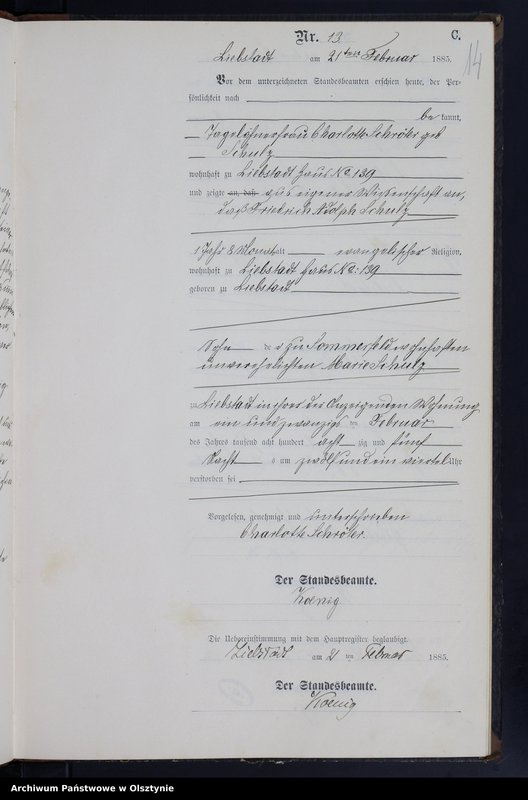 Nr. 13. C.
14
Liebstadt am 21 ten Februar 1885.
Vor dem unterzeichneten Standesbeamten erschien heute, der Per-
sönlichkeit nach
be kannt,
Tagelöhnerfrau Charlotte Schröter geb
Schulz
wohnhaft zu Liebstadt Haus No 139
und zeigte an, daß aus eigener Wissenschaft an,
daß Friedrich Adolph Schulz
1 Jahr 8 Monat alt evangelischer Religion,
wohnhaft zu Liebstadt Haus No: 139
geboren zu Liebstadt
Sohn der zu Sommerfeld wohnhaften
unverehelichten Marie Schulz
zu Liebstadt in der Anzeigenden Wohnung
am ein und zwanzigs ten Februar
des Jahres tausend acht hundert acht zig und fünf
Nacht s um zwölf und ein viertel Uhr
verstorben sei
Vorgelesen, genehmigt und unterschrieben
Charlotte Schröter.
Der Standesbeamte.
Koenig
Die Uebereinstimmung mit dem Hauptregister beglaubigt.
Liebstadt am 21 ten Februar 1885.
Der Standesbeamte.
Koenig
Archiwum Państwowe w Olsztynie